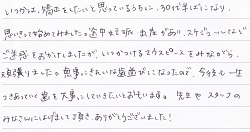 いつかは、矯正をしたいと思っているうちに、30代半ばになり、
思いきって始めてみました。途中、妊娠、出産があり、スケジュールなど
ご迷惑をおかけしましたが、いつかつけるマウスピースをみながら、
頑張りました。無事にきれいな歯並びになったので、今後も一生
つきあっていく歯を大事にしていきたいとおもいます。先生やスタッフの
みなさんにはげまして頂き、ありがとうございました!